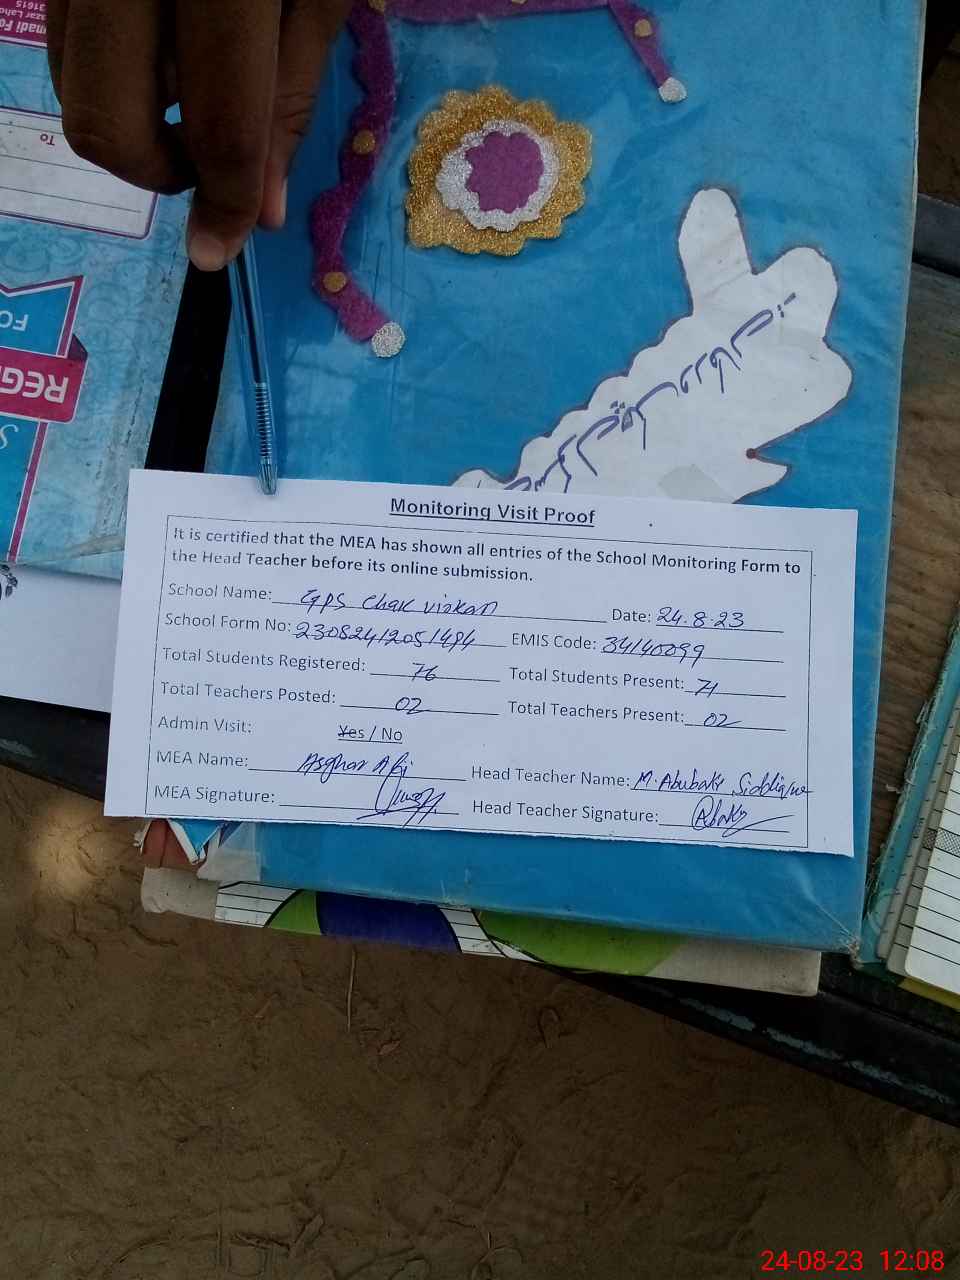 To
REGI
FO
Monitoring Visit Proof
It is certified that the MEA has shown all entries of the School Monitoring Form to
the Head Teacher before its online submission.
School Name: GPS Chak Virkan Date: 24.8.23
School Form No: 23082412051494 EMIS Code: 34140099
Total Students Registered: 76 Total Students Present: 71
Total Teachers Posted: 02 Total Teachers Present: 02
Admin Visit: Yes / No
MEA Name: Asghar Ali Head Teacher Name: M. Abubakr Siddique
MEA Signature: Head Teacher Signature:
24-08-23 12:08